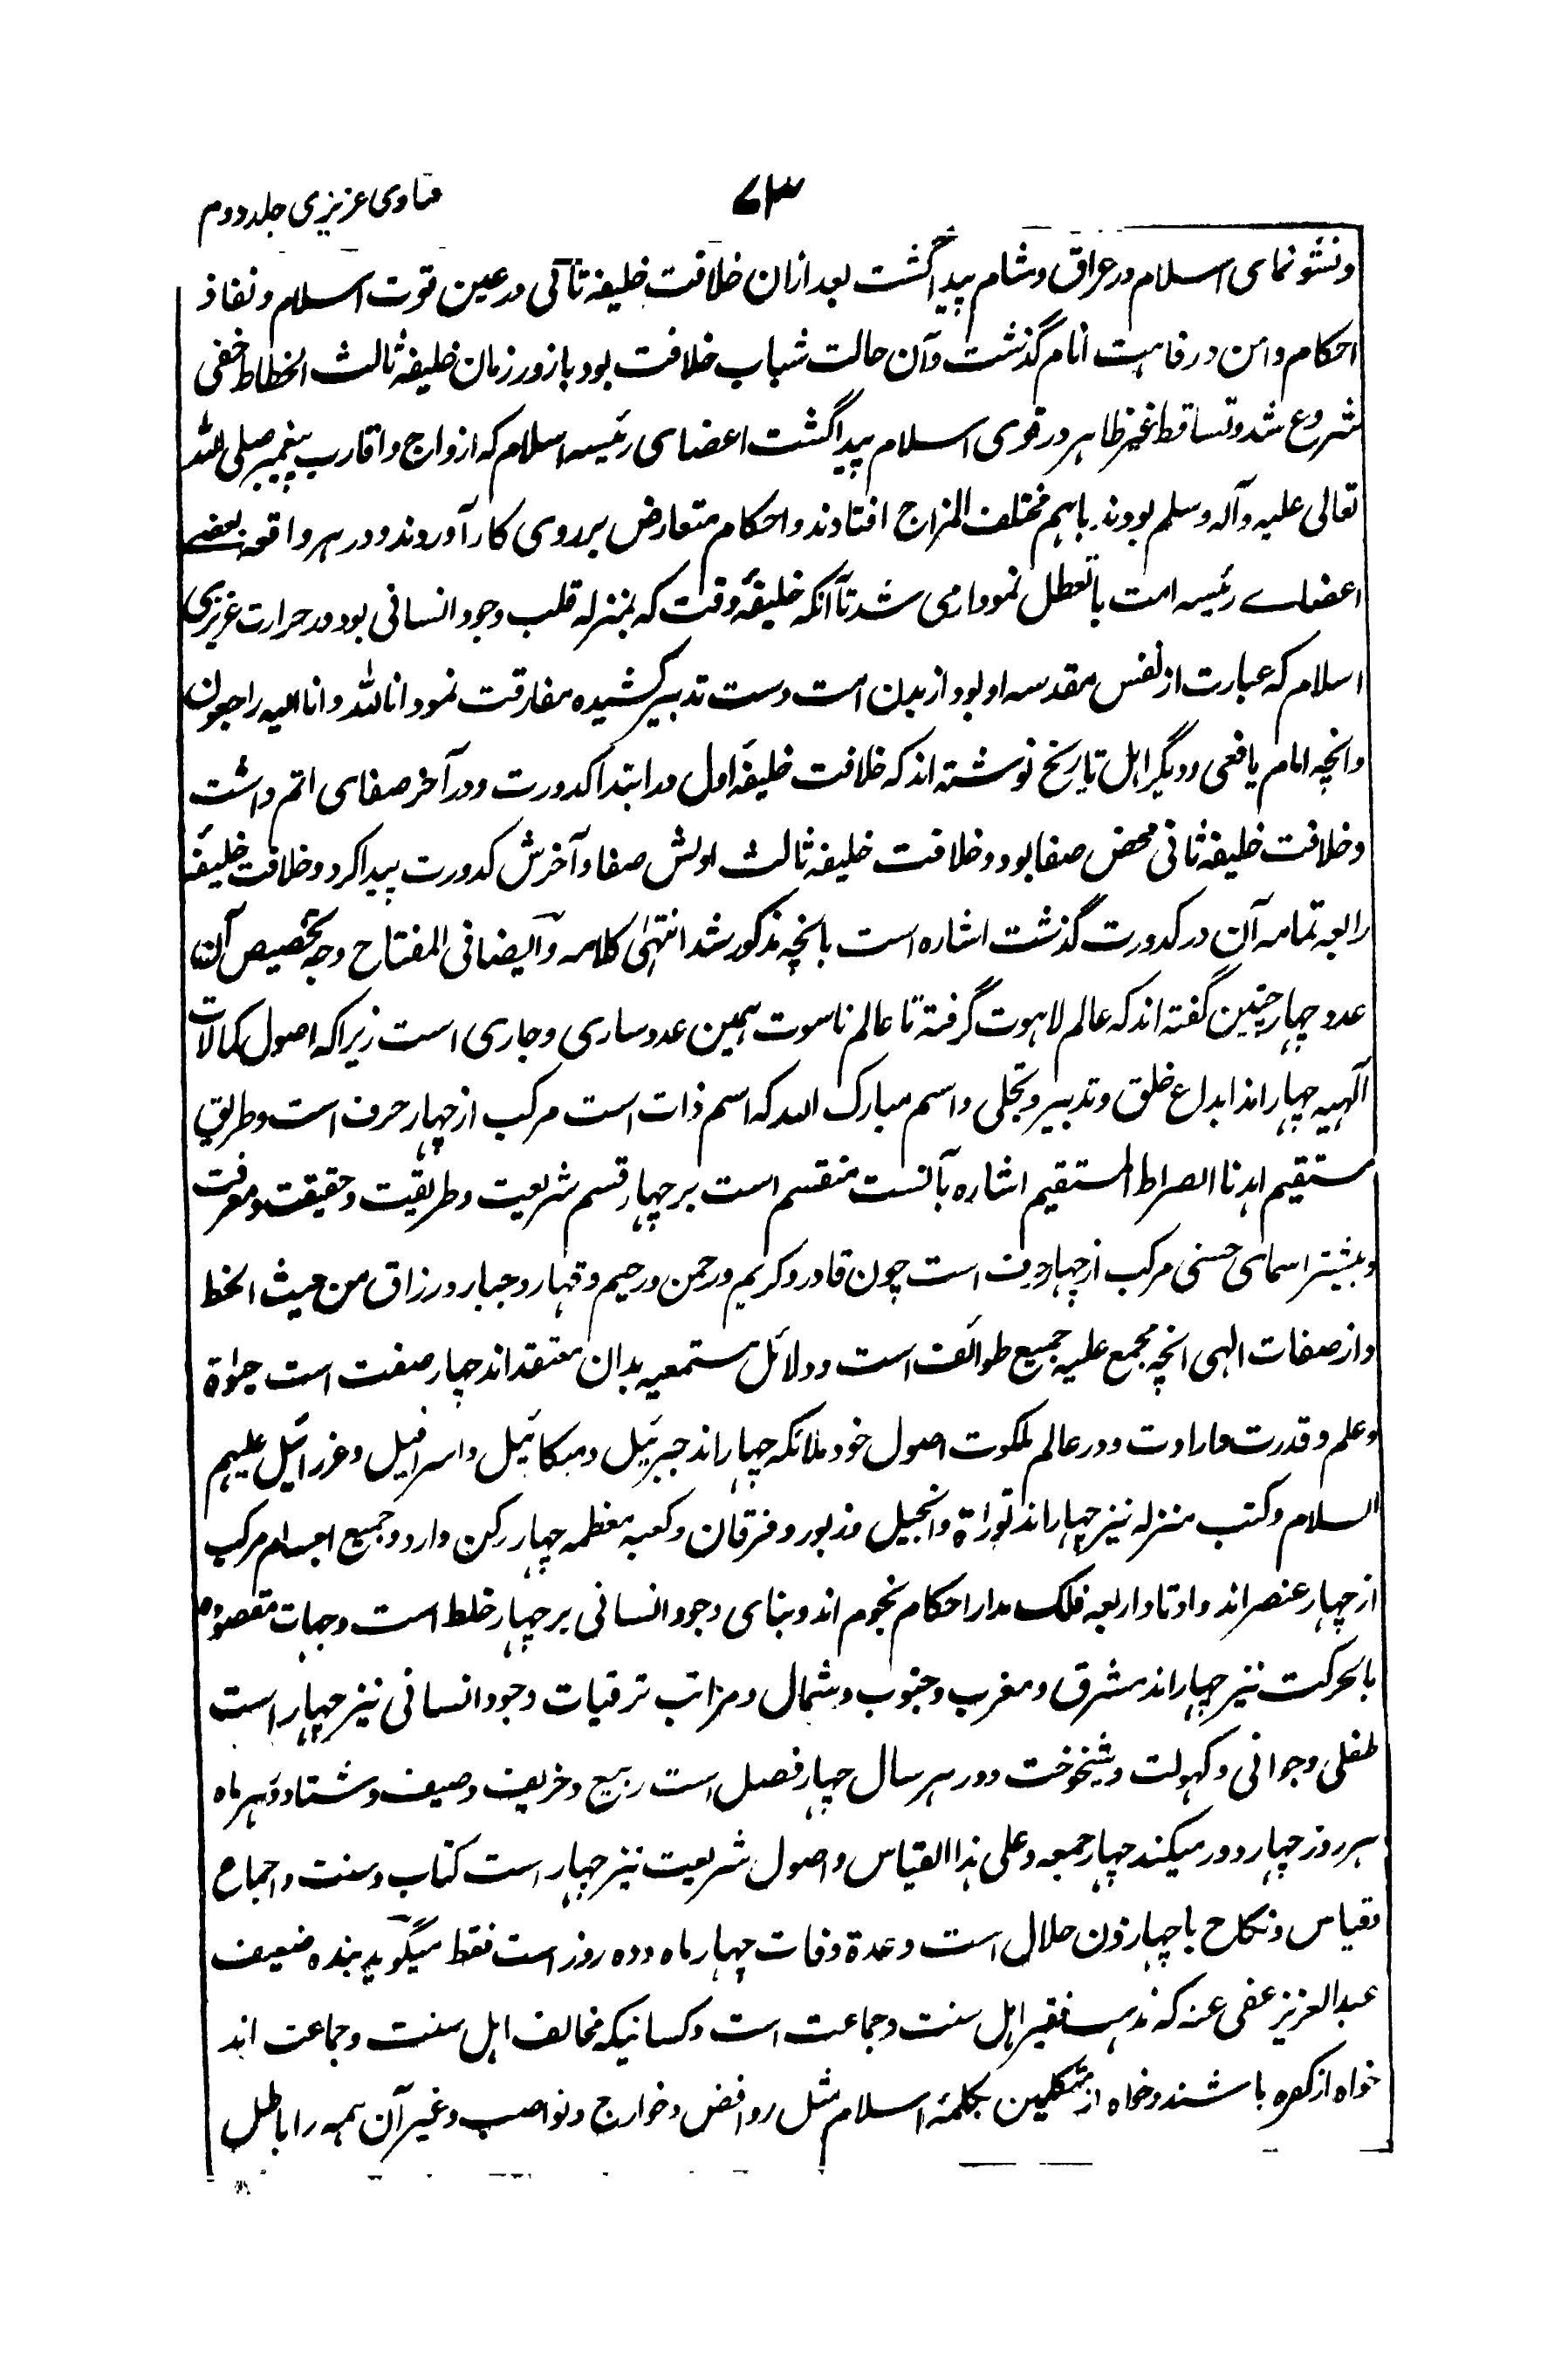 فتاوی عزیزی جلد دوم
۷۳
ونشو نمای اسلام در عراق وشام پیدا گشت بعد ازان خلافت خلیفهٔ ثانی در عین قوت اسلام ونفاذ
احکام وامن ورفاهیت انام گذشت وآن حالت شباب خلافت بود باز در زمان خلیفهٔ ثالث انحطاط خفی
شروع شد وتساقط غیر ظاهر در قوی اسلام پیدا گشت اعضای رئیسه اسلام که ازواج واقارب پیغمبر صلی الله
تعالی علیه وآله وسلم بودند باہم مختلف المزاج افتادند واحکام متعارض بر روی کار آوردند ودر ہر واقعه بعضے
اعضاے رئیسه امت با تعطل نمودار می شد تا آنکه خلیفهٔ وقت که بمنزله قلب وجود انسانی بود در حرارت غریزی
اسلام که عبارت از نفس مقدسه او بود از بدن امت دست تدبیر کشیده مفارقت نمود انا لله وانا الیه راجعون
وانچه امام یافعی ودیگر اہل تاریخ نوشته اند که خلافت خلیفهٔ اول در ابتدا کدورت ودر آخر صفای اتم داشت
وخلافت خلیفهٔ ثانی محض صفا بود وخلافت خلیفهٔ ثالث اولش صفا وآخرش کدورت پیدا کرد وخلافت خلیفهٔ
رابعه تمامه آن در کدورت گذشت اشاره است بانچه مذکور شد انتهی کلامه وایضا فی المفتاح وجه تخصیص آن
عدد چہار چنین گفته اند که عالم لاہوت گرفته تا عالم ناسوت ہمین عدد ساری وجاری است زیرا که اصول کمالات
آلهیه چہار اند ابداع خلق وتدبیر وتجلی واسم مبارک الله که اسم ذات است مرکب از چہار حرف است وطریق
مستقیم اہدنا الصراط المستقیم اشاره بآنست منقسم است بر چہار قسم شریعت وطریقت وحقیقت ومعرفت
وبیشتر اسمای حسنی مرکب از چہار حرف است چون قادر وکریم ورحمن ورحیم وقهار وجبار ورزاق من حیث الخط
واز صفات الهی انچه مجمع علیه جمیع طوائف است ودلائل سمعیه بدان معتقد اند چہار صفت است حیٰوة
وعلم وقدرت وارادت ودر عالم ملکوت اصول خود ملائکه چہار اند جبرئیل ومیکائیل واسرافیل وعزرائیل علیهم
السلام وکتب منزله نیز چہار اند توراة وانجیل وزبور وفرقان وکعبه معظمه چہار رکن دارد وجمیع اجسام مرکب
از چہار عنصر اند واوتاد اربعه فلک مدار احکام نجوم اند وبنای وجود انسانی بر چہار خلط است وجهات مقصوده
بالحرکت نیز چہار اند مشرق ومغرب وجنوب وشمال ومراتب ترقیات وجود انسانی نیز چہار است
طفلی وجوانی وکہولت وشیخوخت ودر ہر سال چہار فصل است ربیع وخریف وصیف وشتا ودر ہر ماه
ہر روز چہار دور میکند چہار جمعه وعلی ہذا القیاس واصول شریعت نیز چہار است کتاب وسنت واجماع
وقیاس ونکاح با چہار زن حلال است وعدة وفات چہار ماه وده روز است فقط میگوید بنده ضعیف
عبد العزیز عفی عنه که مذہب فقیر اہل سنت وجماعت است وکسانیکه مخالف اہل سنت وجماعت اند
خواه از کفره باشند وخواه از متکلمین بکلمهٔ اسلام مثل روافض وخوارج ونواصب وغیر آن ہمه را باطل